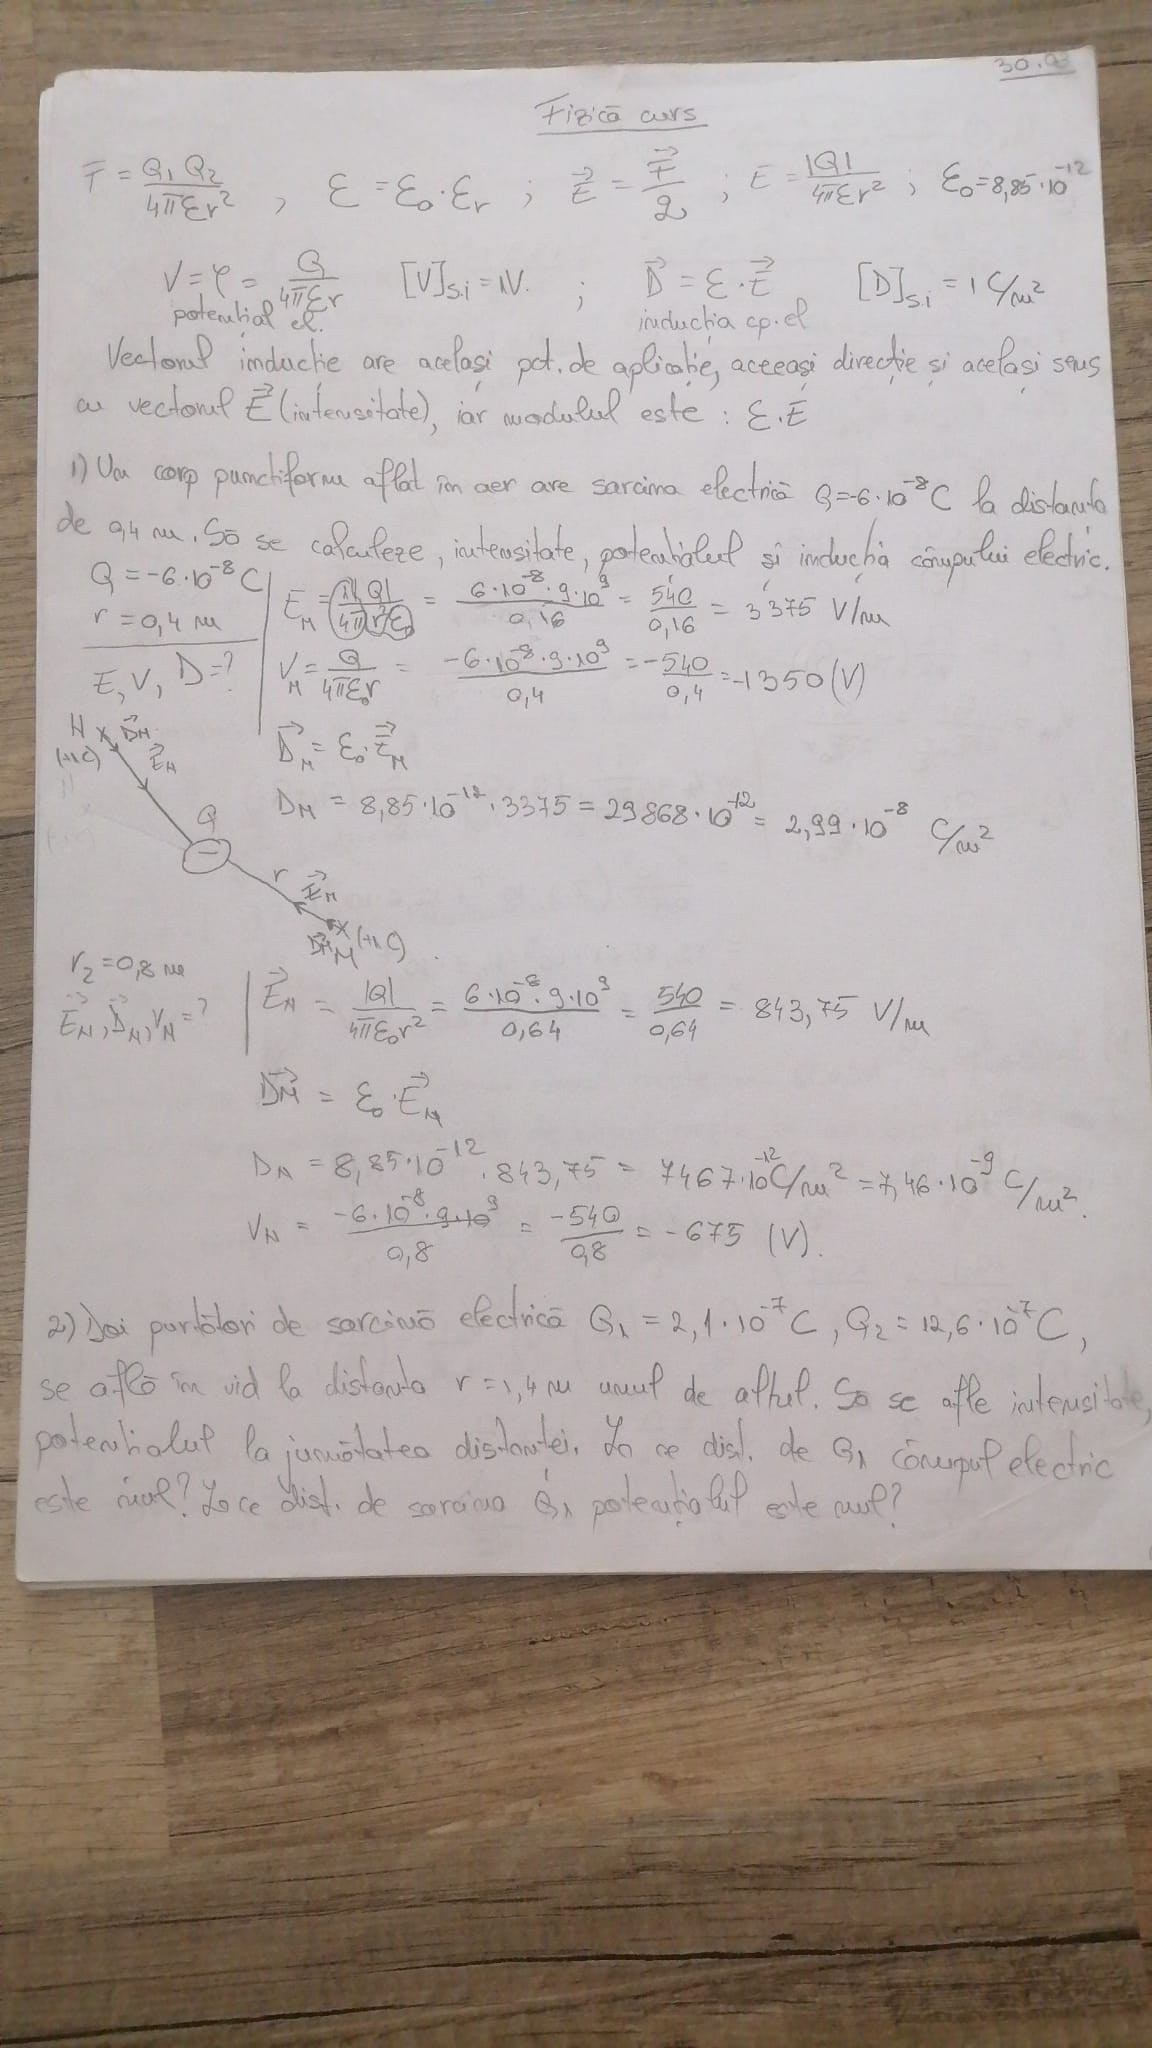 30.03
Fizică curs
F = Q₁ Q₂ / 4πεr² , ε = ε₀·εᵣ ; E⃗ = F⃗ / 2 ; E = |Q| / 4πεr² ; ε₀ = 8,85·10⁻¹²
V = φ = Q / 4πεr [V]s.i = 1V. ; D⃗ = ε·E⃗ [D]s.i = 1 C/m²
potențial el. inducția cp.el
Vectorul inducție are același pct. de aplicație, aceeași direcție și același sens
cu vectorul E⃗ (intensitate), iar modulul este : ε.E
1) Un corp punctiform aflat în aer are sarcina electrică Q=-6·10⁻⁸C la distanța
de 0,4 m. Să se calculeze, intensitate, potențialul și inducția câmpului electric.
Q = -6·10⁻⁸ C
r = 0,4 m
E, V, D = ?
E_M = |Q| / 4πr²ε₀ = 6·10⁻⁸·9·10⁹ / 0,16 = 540 / 0,16 = 3375 V/m
V_M = Q / 4πε₀r = -6·10⁻⁸·9·10⁹ / 0,4 = -540 / 0,4 = -1350 (V)
D⃗_M = ε₀·E⃗_M
D_M = 8,85·10⁻¹²·3375 = 29868·10⁻¹² = 2,99·10⁻⁸ C/m²
N D⃗N
(+1C) E⃗N
Q
-
r E⃗M
D⃗M M (+1C)
r₂ = 0,8 m
E⃗_N, D⃗_N, V_N = ?
E⃗_N = |Q| / 4πε₀r² = 6·10⁻⁸·9·10⁹ / 0,64 = 540 / 0,64 = 843,75 V/m
D⃗N = ε₀·E⃗_N
D_N = 8,85·10⁻¹².843,75 = 7467·10⁻¹²C/m² = 7,46·10⁻⁹ C/m².
V_N = -6·10⁻⁸·9·10⁹ / 0,8 = -540 / 0,8 = -675 (V).
2) Doi purtători de sarcină electrică Q₁ = 2,1·10⁻⁷C, Q₂ = 12,6·10⁻⁷C,
se află în vid la distanța r = 1,4 m unul de altul. Să se afle intensitate,
potențialul la jumătatea distanței. La ce dist. de Q₁ câmpul electric
este nul? La ce dist. de sarcina Q₁ potențialul este nul?